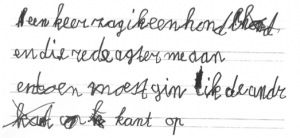 een keer zag ik een hond
en die rede agter me aan
en toen moest gin lik de andr
kant op